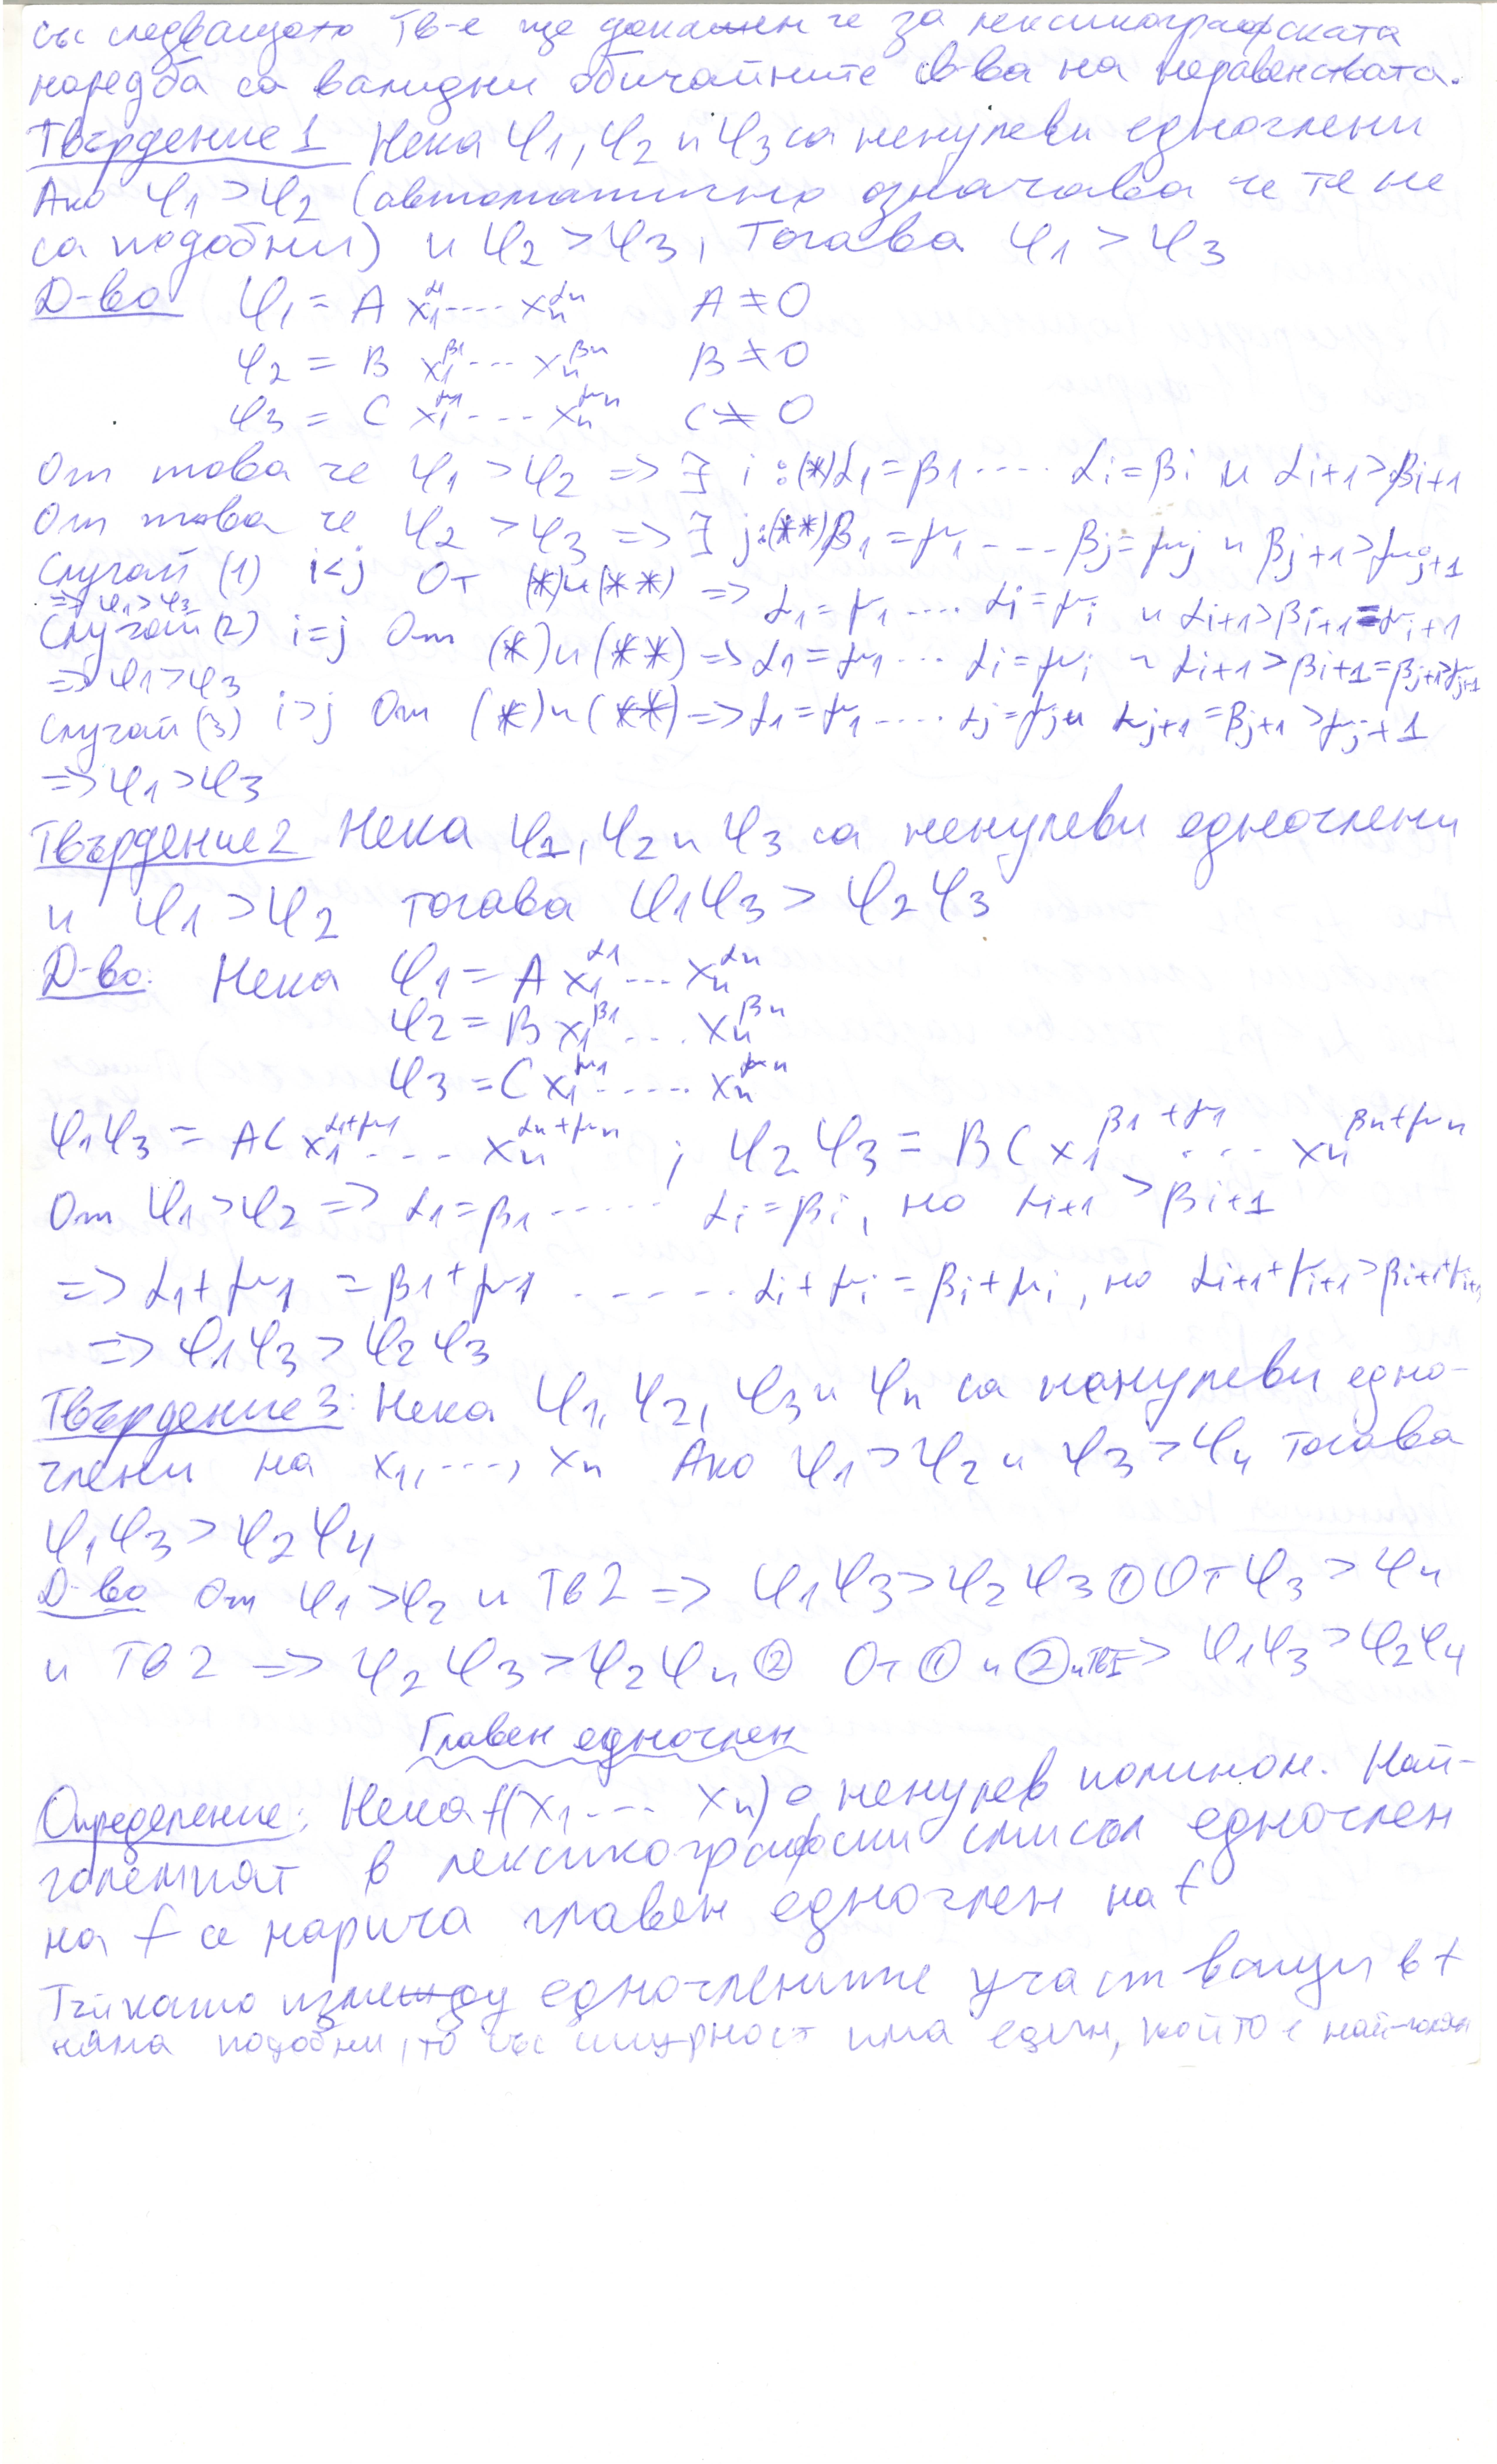 със следващото Тв-е ще докажем че за лексикографската
наредба са валидни обичайните св-ва на неравенствата.
Твърдение 1 Нека φ1, φ2 и φ3 са ненулеви едночлени
Ако φ1 > φ2 (автоматично означава че те не
са подобни) и φ2 > φ3, Тогава φ1 > φ3
Д-во φ1 = A x1^α1 .... xn^αn A ≠ 0
φ2 = B x1^β1 ... xn^βn B ≠ 0
φ3 = C x1^γ1 ... xn^γn C ≠ 0
От това че φ1 > φ2 => ∃ i : (*) α1 = β1 .... αi = βi и αi+1 > βi+1
От това че φ2 > φ3 => ∃ j : (**) β1 = γ1 ... βj = γj и βj+1 > γj+1
Случай (1) i < j От (*) и (**) => α1 = γ1 .... αi = γi и αi+1 > βi+1 = γi+1
=> φ1 > φ3
Случай (2) i = j От (*) и (**) => α1 = γ1 ... αi = γi и αi+1 > βi+1 = βj+1 > γj+1
=> φ1 > φ3
Случай (3) i > j От (*) и (**) => α1 = γ1 .... αj = γj и αj+1 = βj+1 > γj+1
=> φ1 > φ3
Твърдение 2 Нека φ1, φ2 и φ3 са ненулеви едночлени
и φ1 > φ2 тогава φ1φ3 > φ2φ3
Д-во. Нека φ1 = A x1^α1 ... xn^αn
φ2 = B x1^β1 ... xn^βn
φ3 = C x1^γ1 ..... xn^γn
φ1φ3 = AC x1^α1+γ1 .... xn^αn+γn ; φ2φ3 = BC x1^β1+γ1 ... xn^βn+γn
От φ1 > φ2 => α1 = β1 ..... αi = βi, но αi+1 > βi+1
=> α1 + γ1 = β1 + γ1 ...... αi + γi = βi + γi, но αi+1 + γi+1 > βi+1 + γi+1
=> φ1φ3 > φ2φ3
Твърдение 3: Нека φ1, φ2, φ3 и φ4 са ненулеви едно-
члени на x1, ..., xn Ако φ1 > φ2 и φ3 > φ4 тогава
φ1φ3 > φ2φ4
Д-во От φ1 > φ2 и Тв 2 => φ1φ3 > φ2φ3 ① От φ3 > φ4
и Тв 2 => φ2φ3 > φ2φ4 ② От ① и ② и Тв1 => φ1φ3 > φ2φ4
Главен едночлен
Определение: Нека f(x1 ... xn) е ненулев полином. Най-
големият в лексикографски смисъл едночлен
на f се нарича главен едночлен на f
Тъй като измежду едночлените участващи в f
няма подобни, то със сигурност има един, който е най-голям